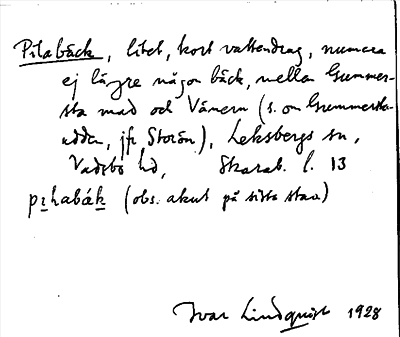 Pilabäck, litet, kort vattendrag, numera
ej längre någon bäck, mellan Grummer-
sta mad och Vänern (s. om Grummersta-
udden, jfr Storön), Leksbergs sn,
Vadsbo hd, Skarab. l. 13
pɪlabäk (obs. akut på sista stav)
Ivar Lindquist 1928